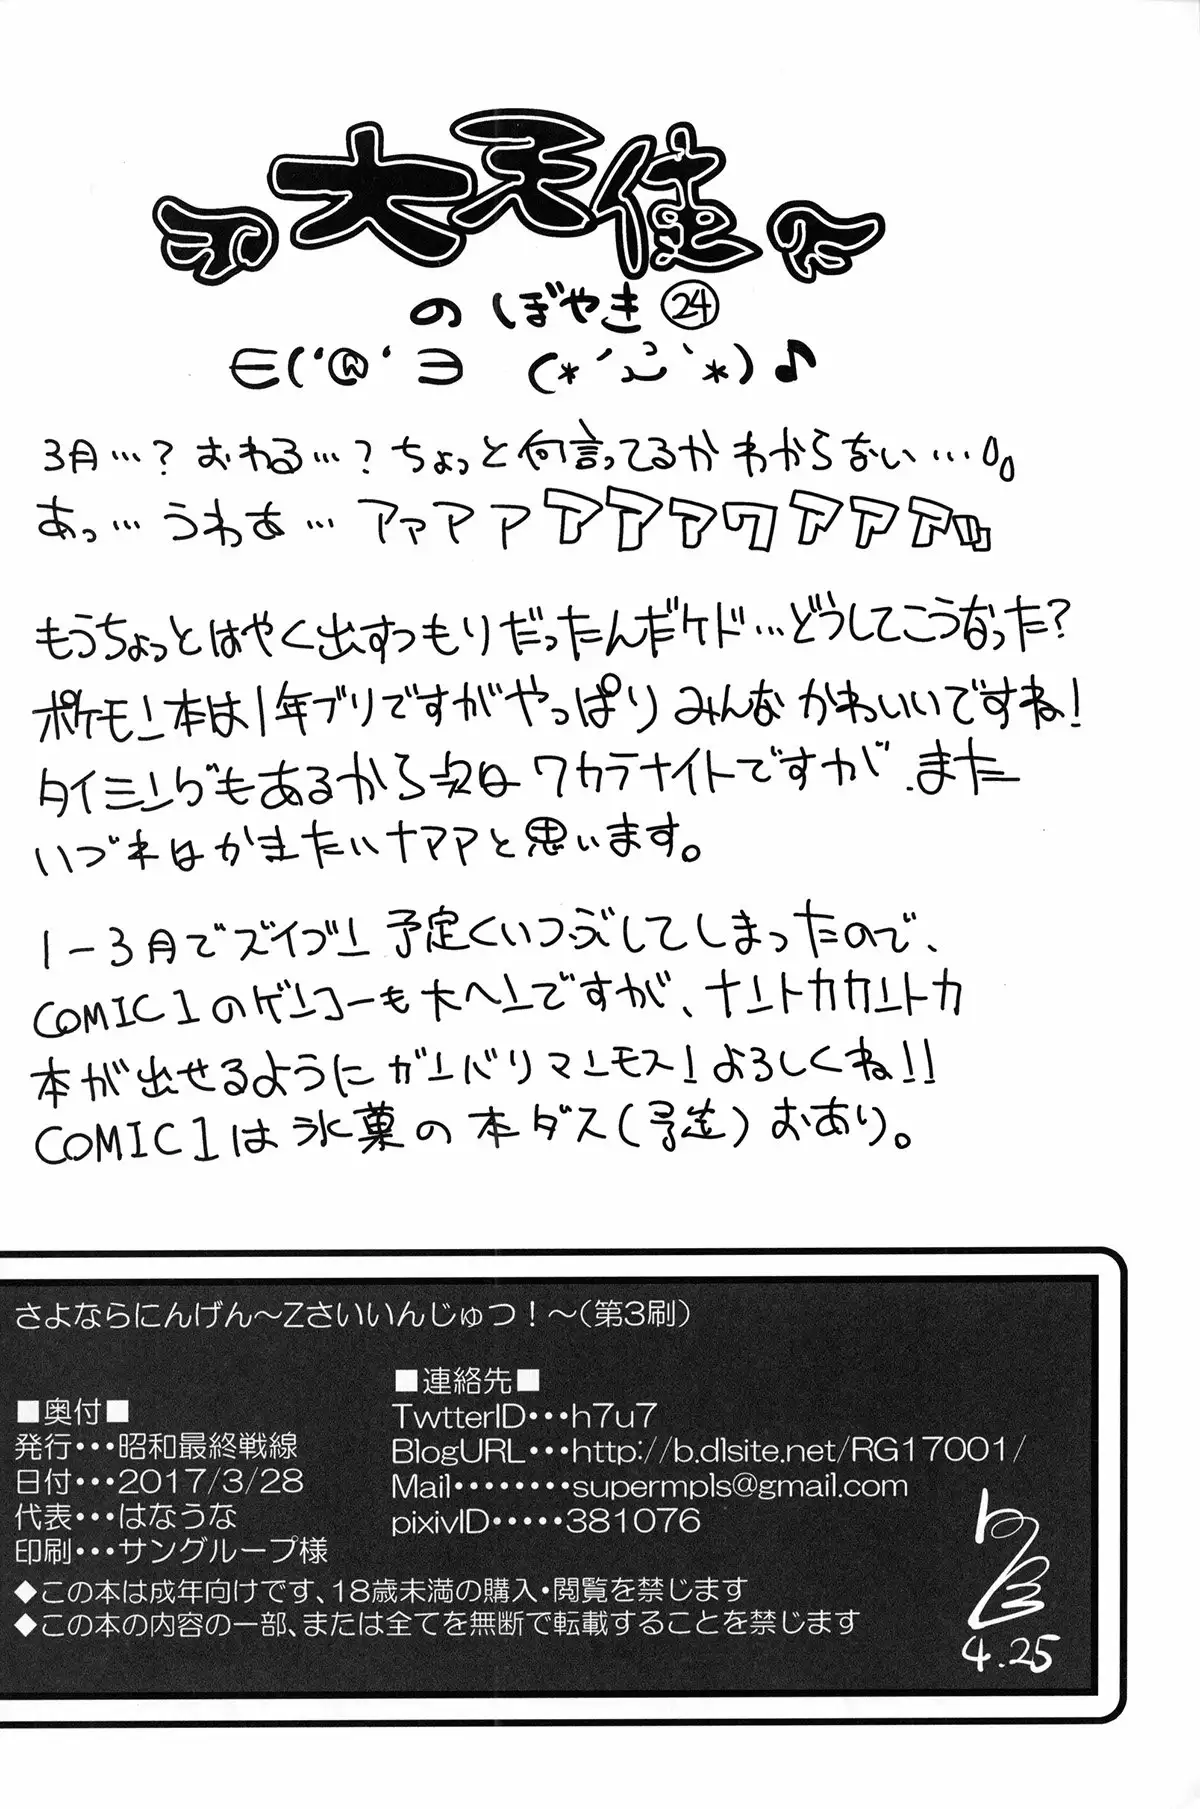 大天使
のぼやき㉔
∈('@'∋ (*´ `*)♪
3月…?おわる…?ちょっと何言ってるかわからない…
あっ…うわぁ…アァアアアアアァワアアア
もうちょっとはやく出すつもりだったんだケド…どうしてこうなった?
ポケモン本は1年ブリですがやっぱりみんなかわいいですね!
タイミングもあるから次はワカラナイトですが、また
いづれはかきたいナアアと思います。
1-3月でズイブン予定くいつぶしてしまったので、
COMIC1のゲンコーも大ヘンですが、ナントカカントカ
本が出せるようにガンバリマンモス!よろしくね!!
COMIC1は氷菓の本ダス(予定)おあり。
さよならにんげん〜Zさいいんじゅつ!〜(第3刷)
■奥付■
発行・・・昭和最終戦線
日付・・・2017/3/28
代表・・・はなうな
印刷・・・サングループ様
■連絡先■
TwtterID・・・h7u7
BlogURL・・・http://b.dlsite.net/RG17001/
Mail・・・・・・・・supermpls@gmail.com
pixivID・・・・・381076
◆この本は成年向けです、18歳未満の購入・閲覧を禁じます
◆この本の内容の一部、または全てを無断で転載することを禁じます
4.25